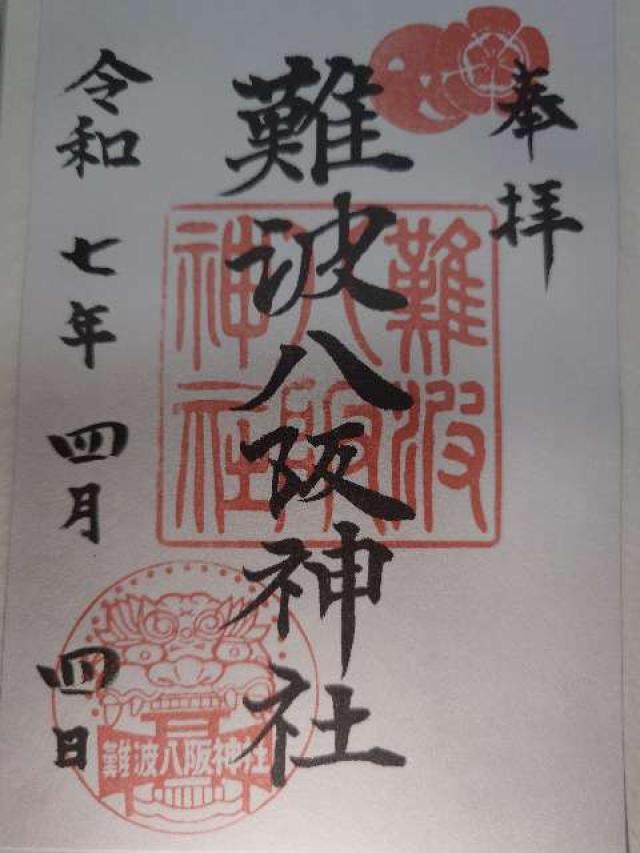 奉拝
難波八阪神社
難波八阪神社
令和七年四月四日
難波八阪神社